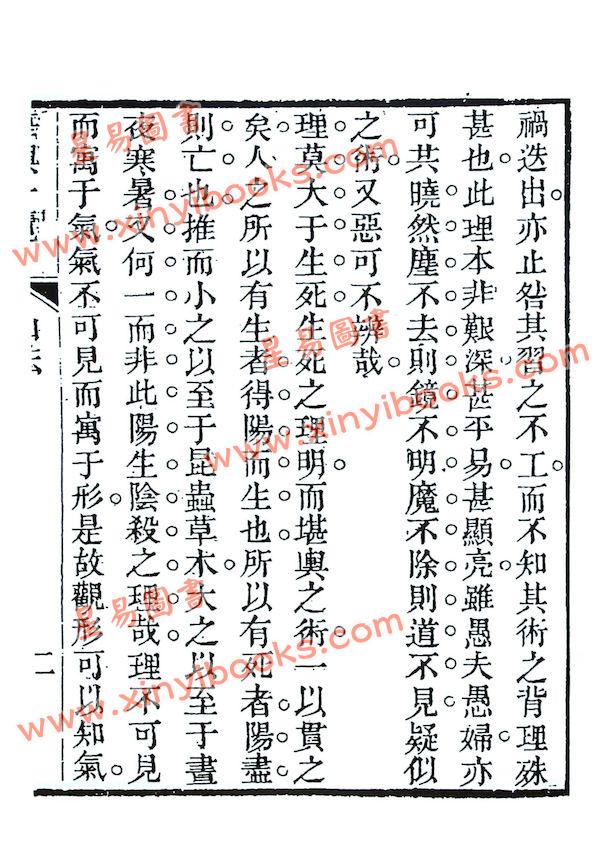 禍迭出亦止咎其習之不工而不知其術之背理殊
甚也此理本非艱深甚平易甚顯亮雖愚夫愚婦亦
可共曉然塵不去則鏡不明魔不除則道不見疑似
之術又惡可不辨哉
理莫大于生死生死之理明而堪輿之術一以貫之
矣人之所以有生者得陽而生也所以有死者陽盡
則亡也推而小之以至于昆蟲草木大之以至于晝
夜寒暑又何一而非此陽生陰殺之理哉理不可見
而寓于氣氣不可見而寓于形是故觀形可以知氣
二
星易圖書
www.xinyibooks.com
星易圖書
www.xinyibooks.com
星易圖書
www.xinyibooks.com